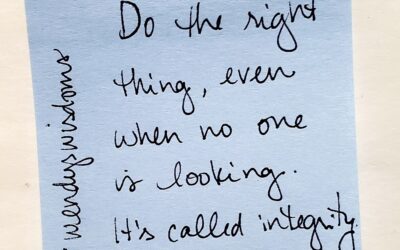 Do the right
thing, even
when no one
is looking.
It's called integrity.
wendyswisdoms